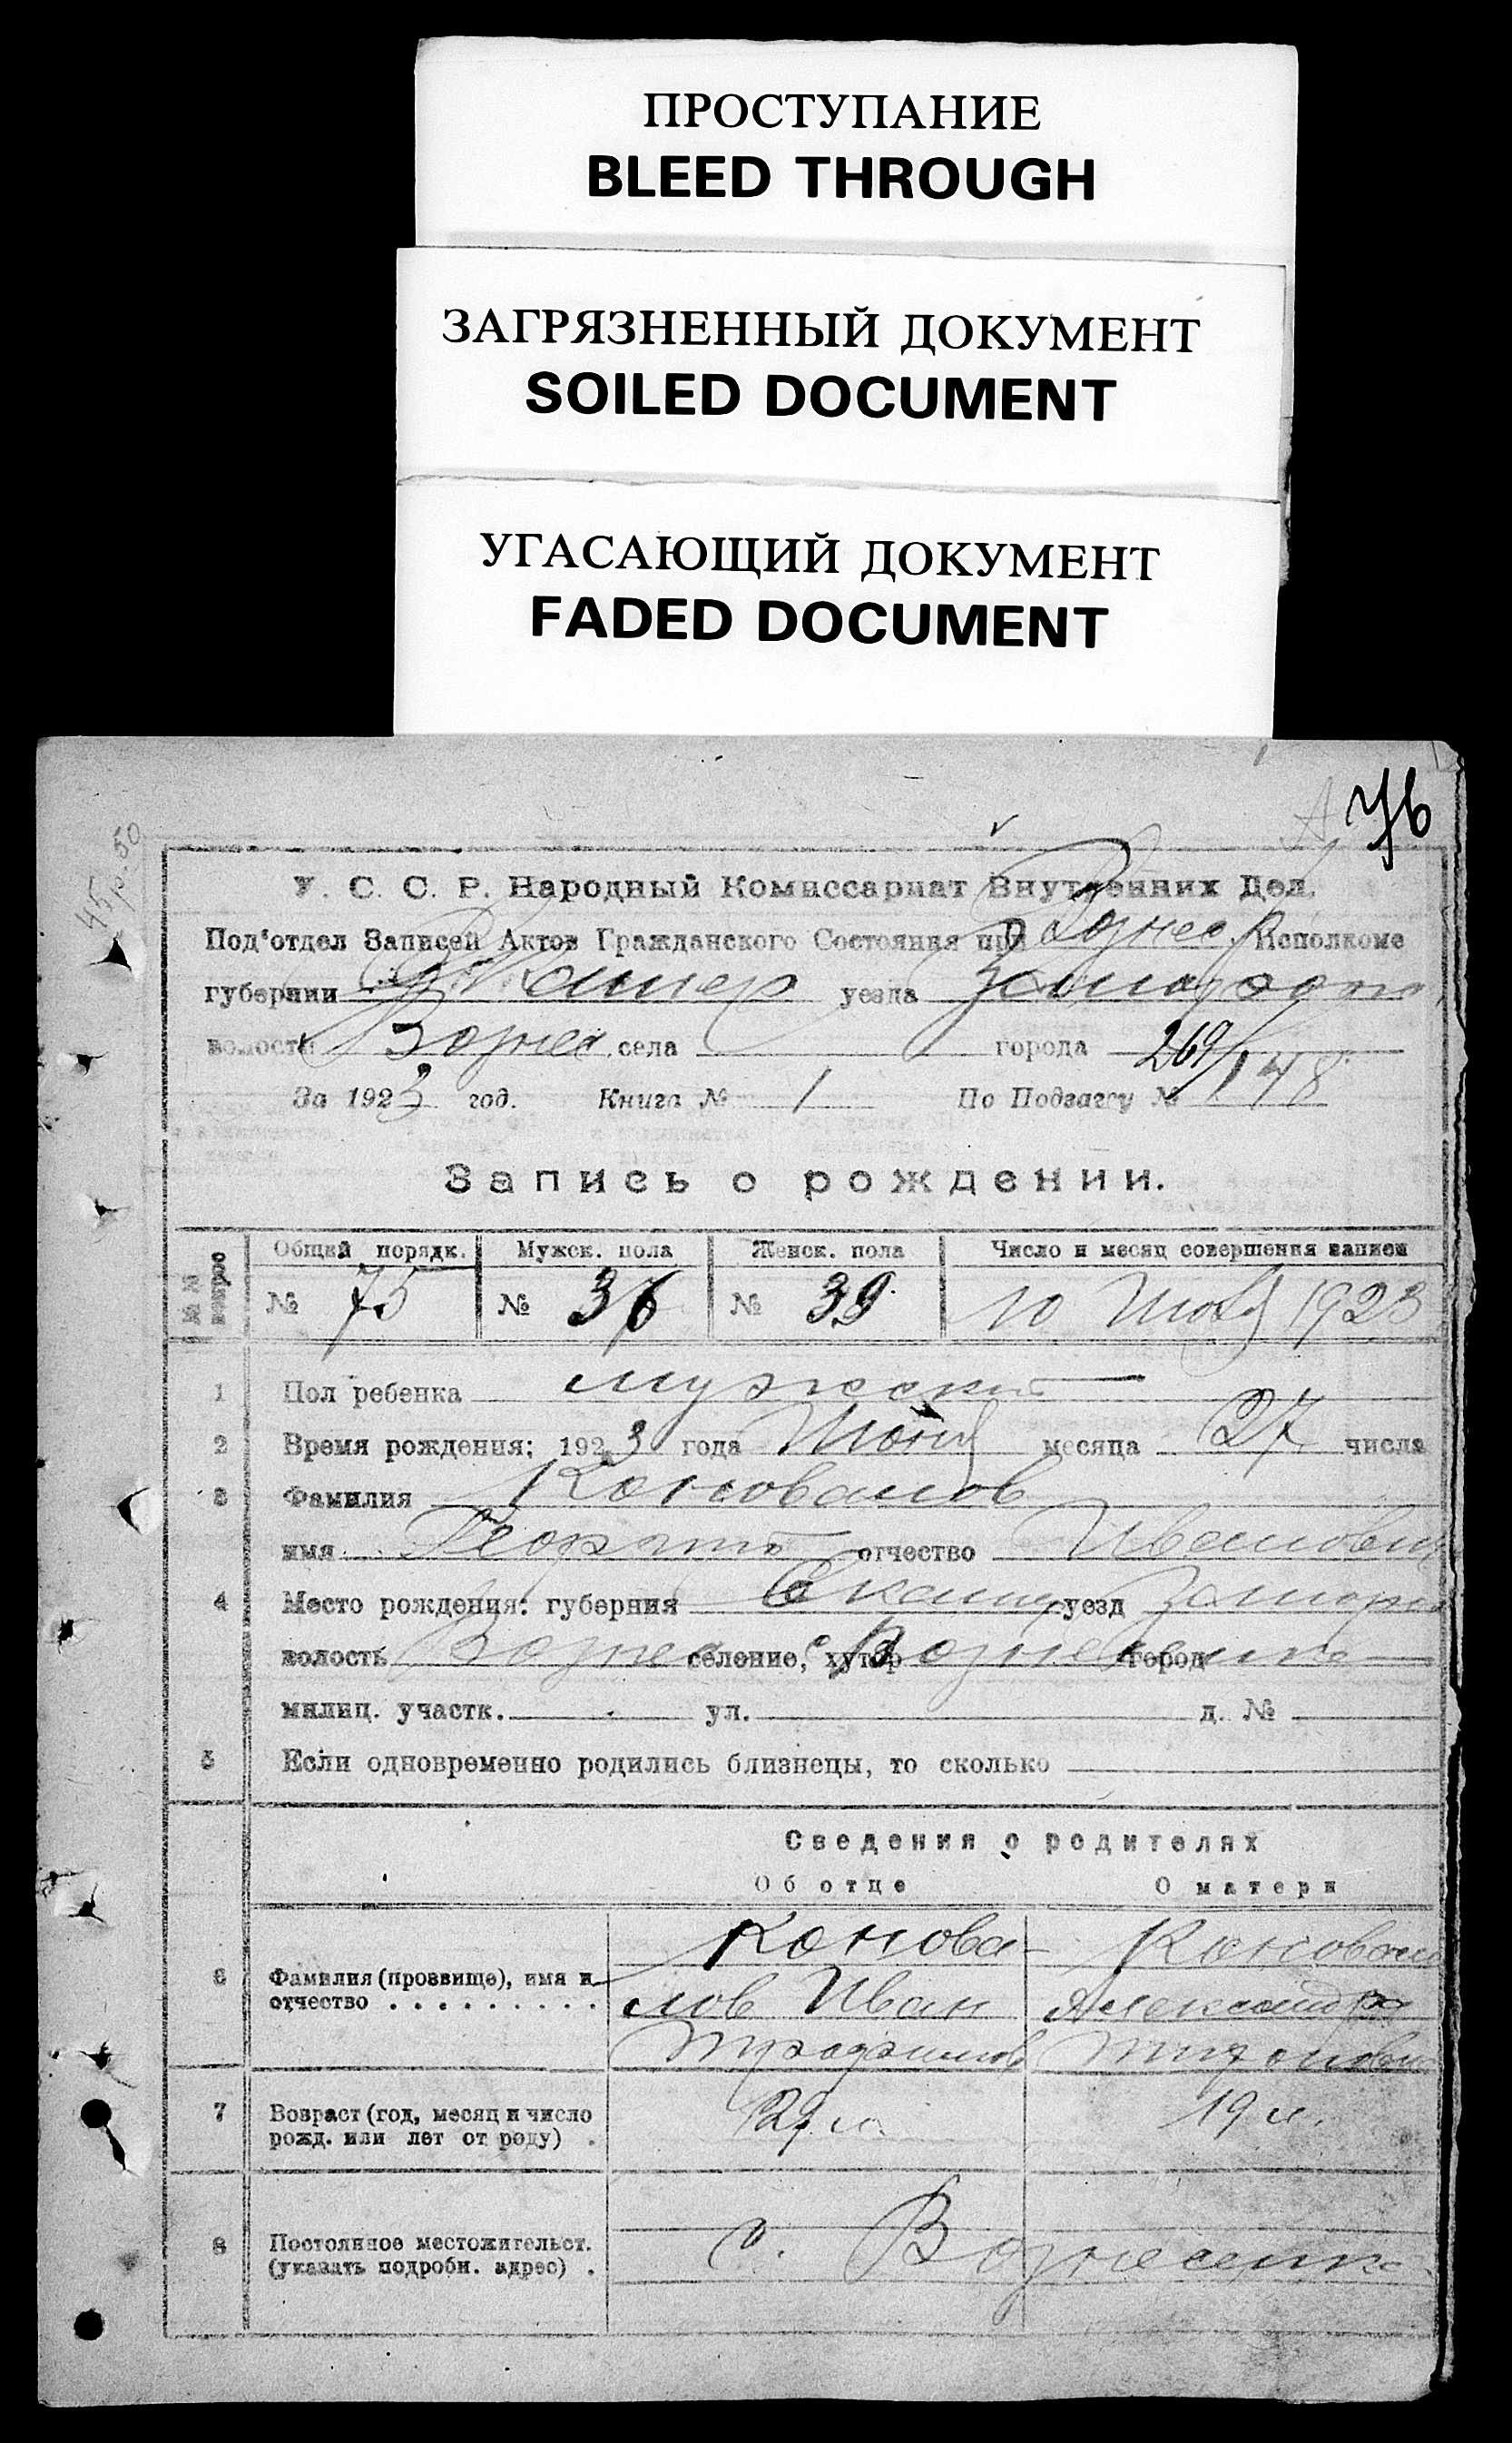 ПРОСТУПАНИЕ
BLEED THROUGH
ЗАГРЯЗНЕННЫЙ ДОКУМЕНТ
SOILED DOCUMENT
УГАСАЮЩИЙ ДОКУМЕНТ
FADED DOCUMENT
76
45р.50
У. С. С. Р. Народный Комиссариат Внутренних Дел.
Под'отдел Записей Актов Гражданского Состояния при Вознес. Исполкоме
губернии уезда
волости Вознес села города 269/148
За 1923 год. Книга № 1 По Подзагсу №
Запись о рождении.
№№ вопрос
Общий порядк. Мужск. пола Женск. пола Число и месяц совершения записи
№ 75 № 36 № 39 10 1923
1 Пол ребенка мужской
2 Время рождения: 1923 года Июня месяца 27 числа
3 Фамилия Коновалов
имя Георгий отчество Иванович
4 Место рождения: губерния Екатер уезд Запорож
волость Вознес селение, хутор Вознесенка город
милиц. участк. ул. д. №
5 Если одновременно родились близнецы, то сколько
Сведения о родителях
Об отце О матери
6 Фамилия (прозвище), имя и отчество . . . . . . . . . Конова- Коновало
лов Иван Александра
7 Возраст (год, месяц и число рожд. или лет от роду) . 29 л. 19 л.
8 Постоянное местожительст. (указать подробн. адрес) . с. Вознесенка